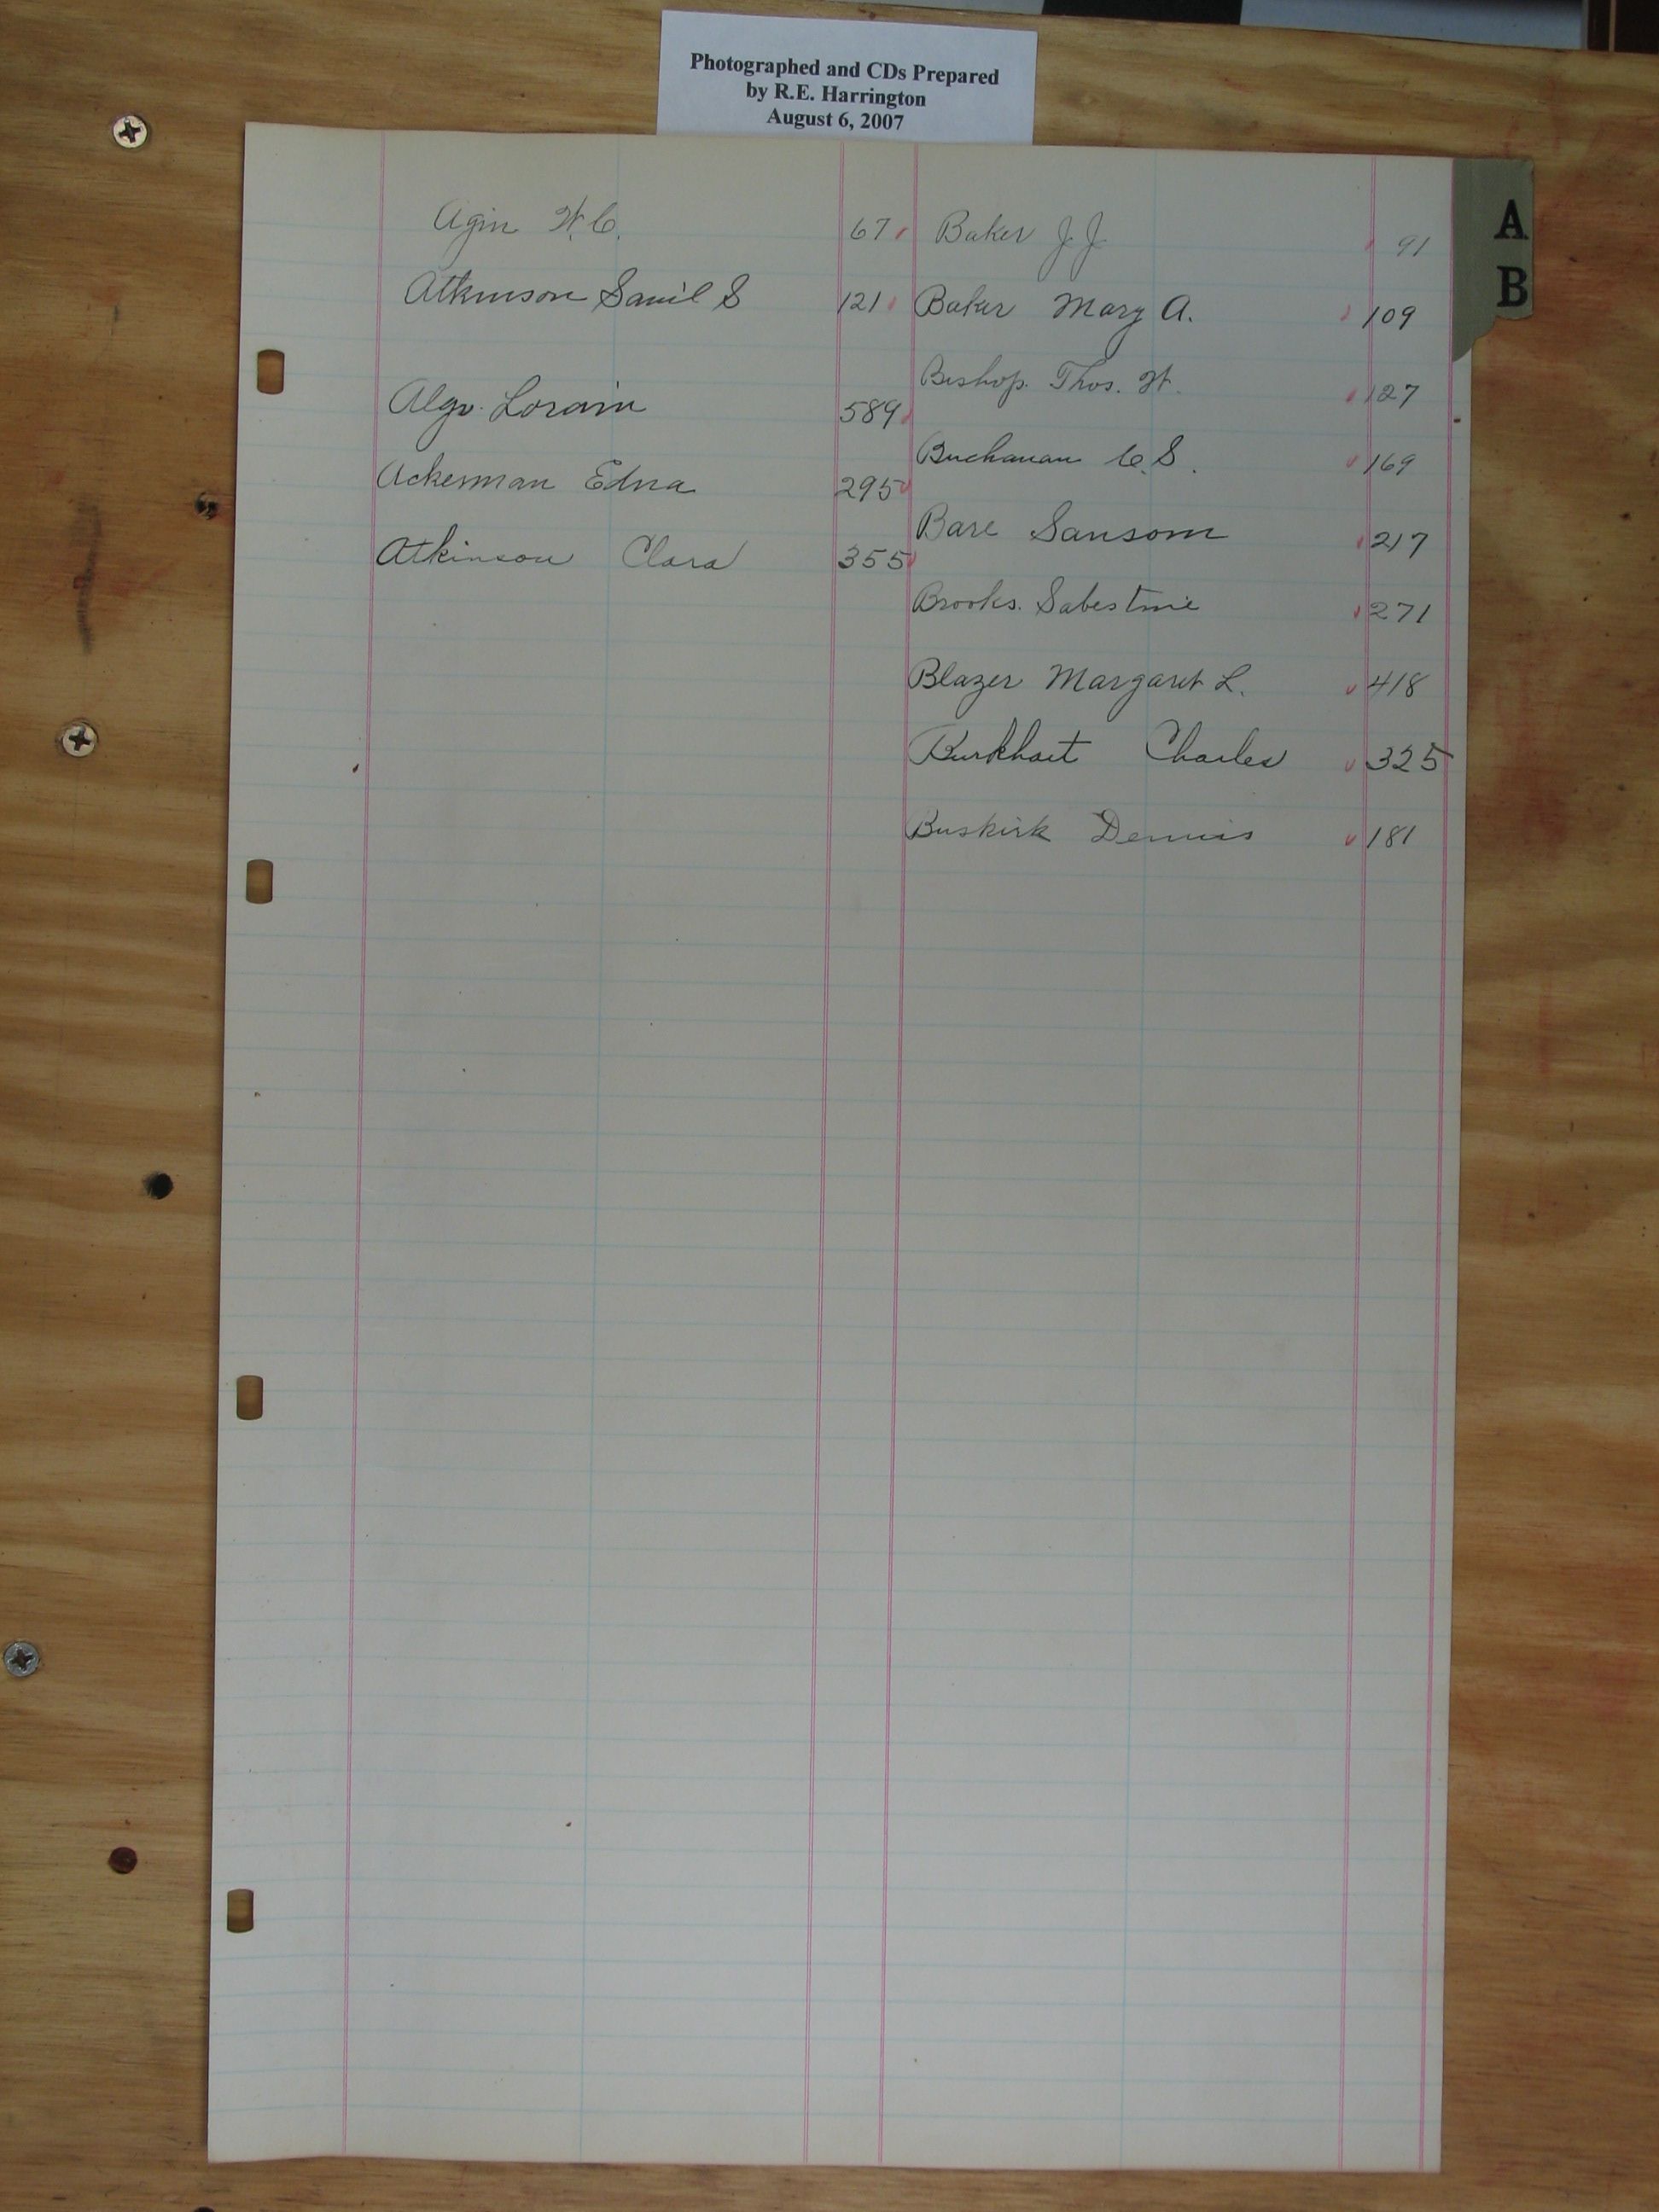 Photographed and CDs Prepared
by R.E. Harrington
August 6, 2007
A
B
Agin W.C. 67
Atkinson Samil S 121
Algo Lorain 589
Ackerman Edna 295
Atkinson Clara 355
Baker J.J. 91
Baker Mary A. 109
Bishop Thos. W. 127
Buchanan C.S. 169
Bare Sansom 217
Brooks. Sabestine 271
Blazer Margaret L. 418
Burkhart Charles 325
Buskirk Dennis 181